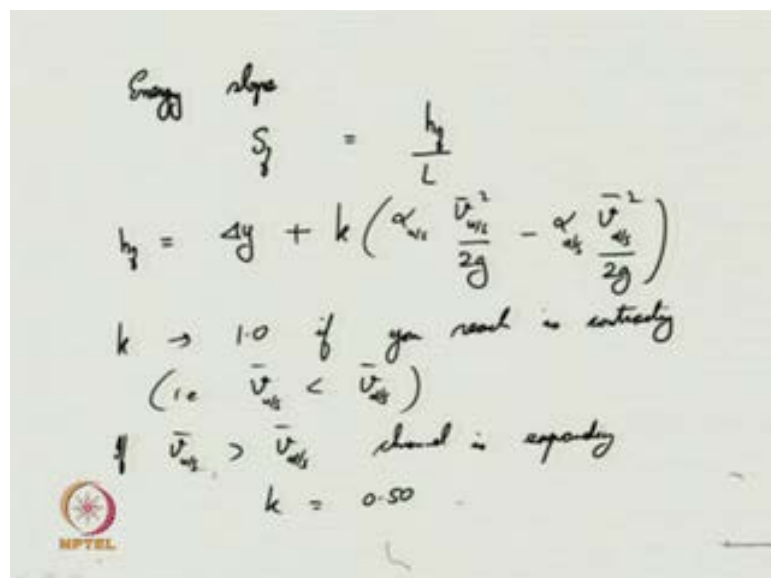 Energy slope
S_f = h_f / L
h_f = Δy + k ( α_u/s V̄²_u/s / 2g − α_d/s V̄²_d/s / 2g )
k → 1.0 if you reach is contracting
(i.e V̄_u/s < V̄_d/s)
If V̄_u/s > V̄_d/s channel is expanding
k = 0.50
NPTEL